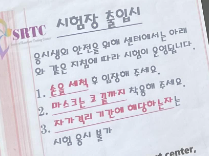 SRTC 시험장 출입시
응시생의 안전을 위해 센터에서는 아래
와 같은 지침에 따라 시험이 운영됩니다.
1. 손을 세척 후 입장해 주세요.
2. 마스크는 코끝까지 착용해 주세요.
3. 자가격리 기간에 해당하는자는
시험 응시 불가
center,